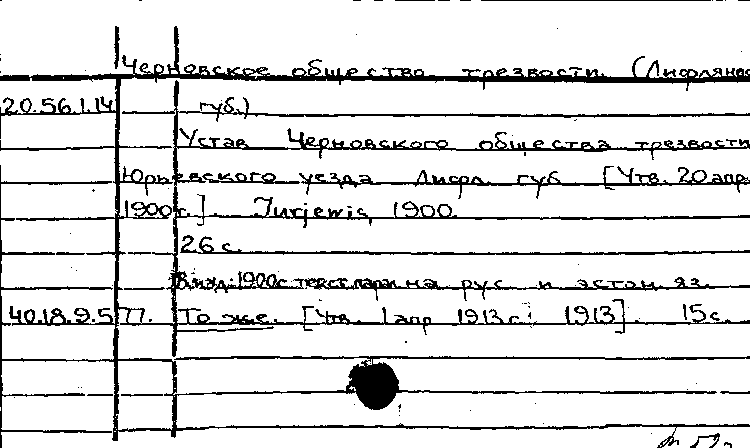 Черновское общество трезвости. (Лифлянд
20.56.1.14 губ.)
Устав Черновского общества трезвости
Юрьевского уезда Лифл. губ [Утв. 20 апр.
1900г.]. Jurjewis, 1900.
26 с.
В изд: 1900г текст парал на рус и эстон яз.
40.18.9.577. То же. [Утв. 1 апр 1913 г. 1913]. 15 с.